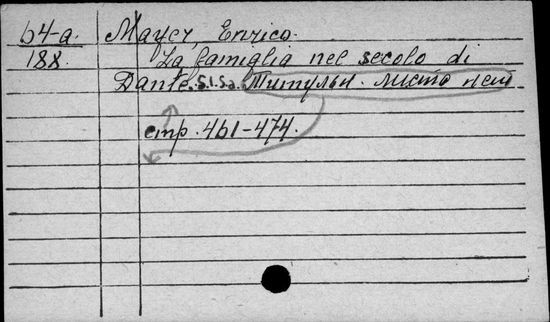 64-a. Mayer, Enrico.
188. La famiglia nel secolo di
Dante. S.l.s.a. Титульн. листа нет
стр. 461-474.